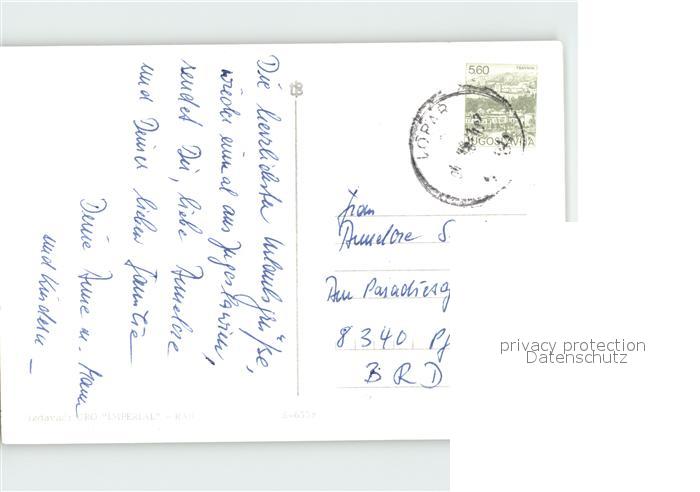 Die herzlichsten Urlaubsgrüße,
wieder einmal aus Jugoslawien,
sendet Dir, liebe Annelore
und Deiner lieben Familie
Deine Anne u. Hann
und Kindern –
TRAVNIK
5,60
JUGOSLAVIJA
LOPAR
Frau
Annelore S
Am Paradies
8340 Pf
BRD
Izdavač: "IMPERIAL" - RAB
privacy protection
Datenschutz